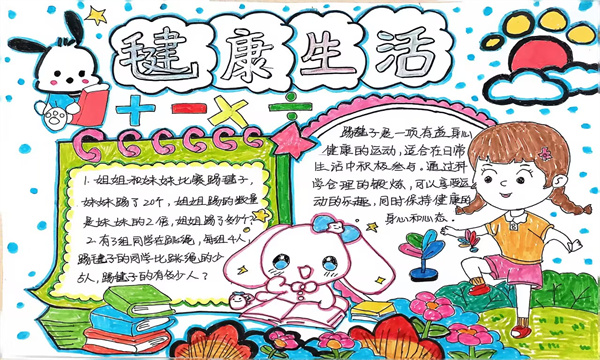 毽康生活
+ − × ÷
1. 姐姐和妹妹比赛踢毽子,
妹妹踢了20个, 姐姐踢的数量
是妹妹的2倍, 姐姐踢了多少个?
2. 有3组同学在跳绳, 每组4人
踢毽子的同学比跳绳的少
5人, 踢毽子的有多少人?
踢毽子是一项有益身心
健康的运动, 适合在日常
生活中积极参与。通过科
学合理的锻炼, 可以享受运
动的乐趣, 同时保持健康的
身心和心态。